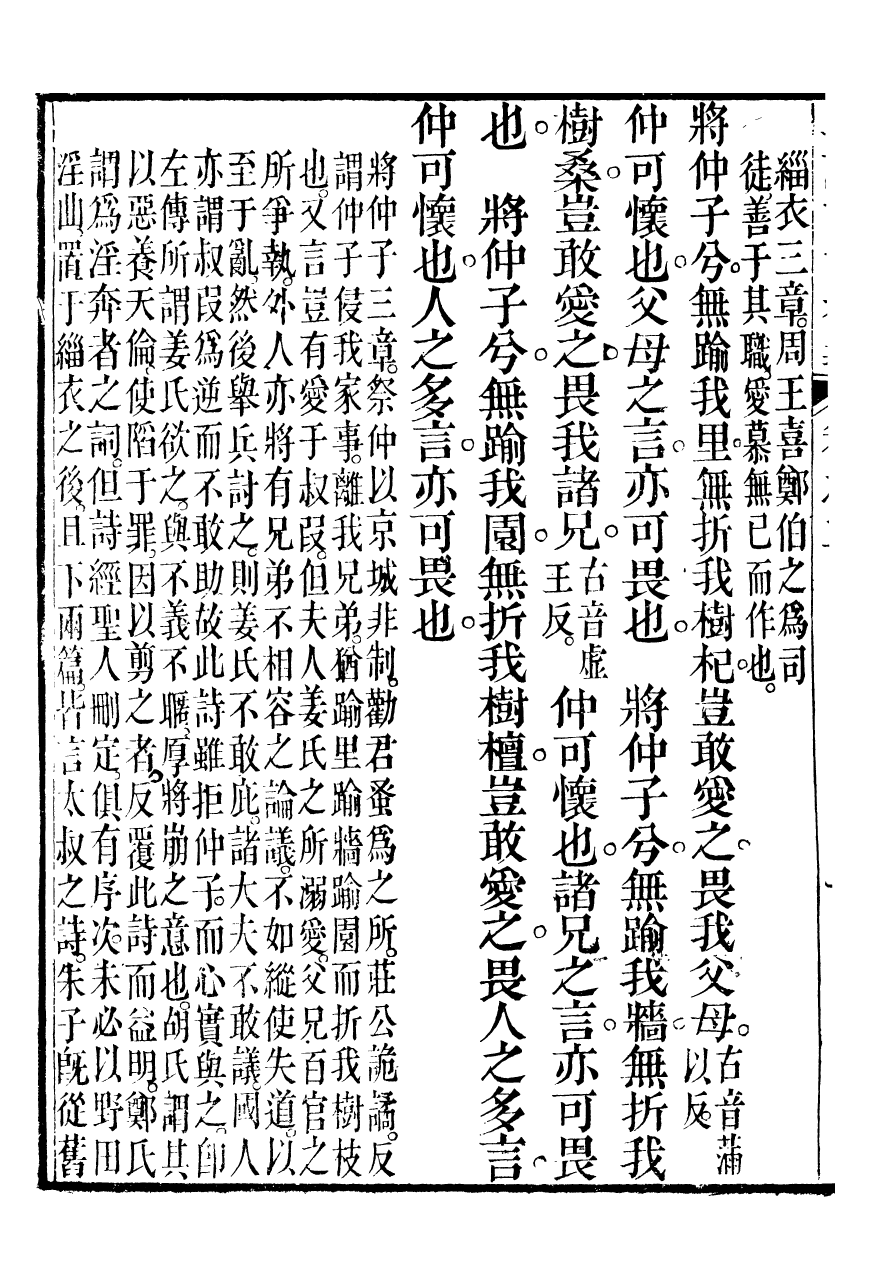 緇衣三章。周王喜鄭伯之爲司
徒善于其職。愛慕無已而作也。
將仲子兮。無踰我里。無折我樹杞。豈敢愛之。畏我父母。古音滿以反。
仲可懷也。父母之言。亦可畏也。　將仲子兮。無踰我牆。無折我
樹桑。豈敢愛之。畏我諸兄。古音虛王反。仲可懷也。諸兄之言。亦可畏
也。　將仲子兮。無踰我園。無折我樹檀。豈敢愛之。畏人之多言。
仲可懷也。人之多言。亦可畏也。
將仲子三章。祭仲以京城非制。勸君蚤爲之所。莊公詭譎。反
謂仲子侵我家事。離我兄弟。猶踰里踰牆踰園而折我樹枝
也。又言豈有愛于叔叚。但夫人姜氏之所溺愛。父兄百官之
所爭執。外人亦將有兄弟不相容之論議。不如縱使失道。以
至于亂。然後舉兵討之。則姜氏不敢庇。諸大夫不敢議。國人
亦謂叔叚爲逆而不敢助。故此詩雖拒仲子。而心實與之。卽
左傳所謂姜氏欲之。與不義不暱。厚將崩之意也。胡氏謂其
以惡養天倫。使陷于罪。因以剪之者。反覆此詩而益明。鄭氏
謂爲淫奔者之詞。但詩經聖人刪定。俱有序次。未必以野田
淫曲。置于緇衣之後。且下兩篇。皆言太叔之詩。朱子旣從舊